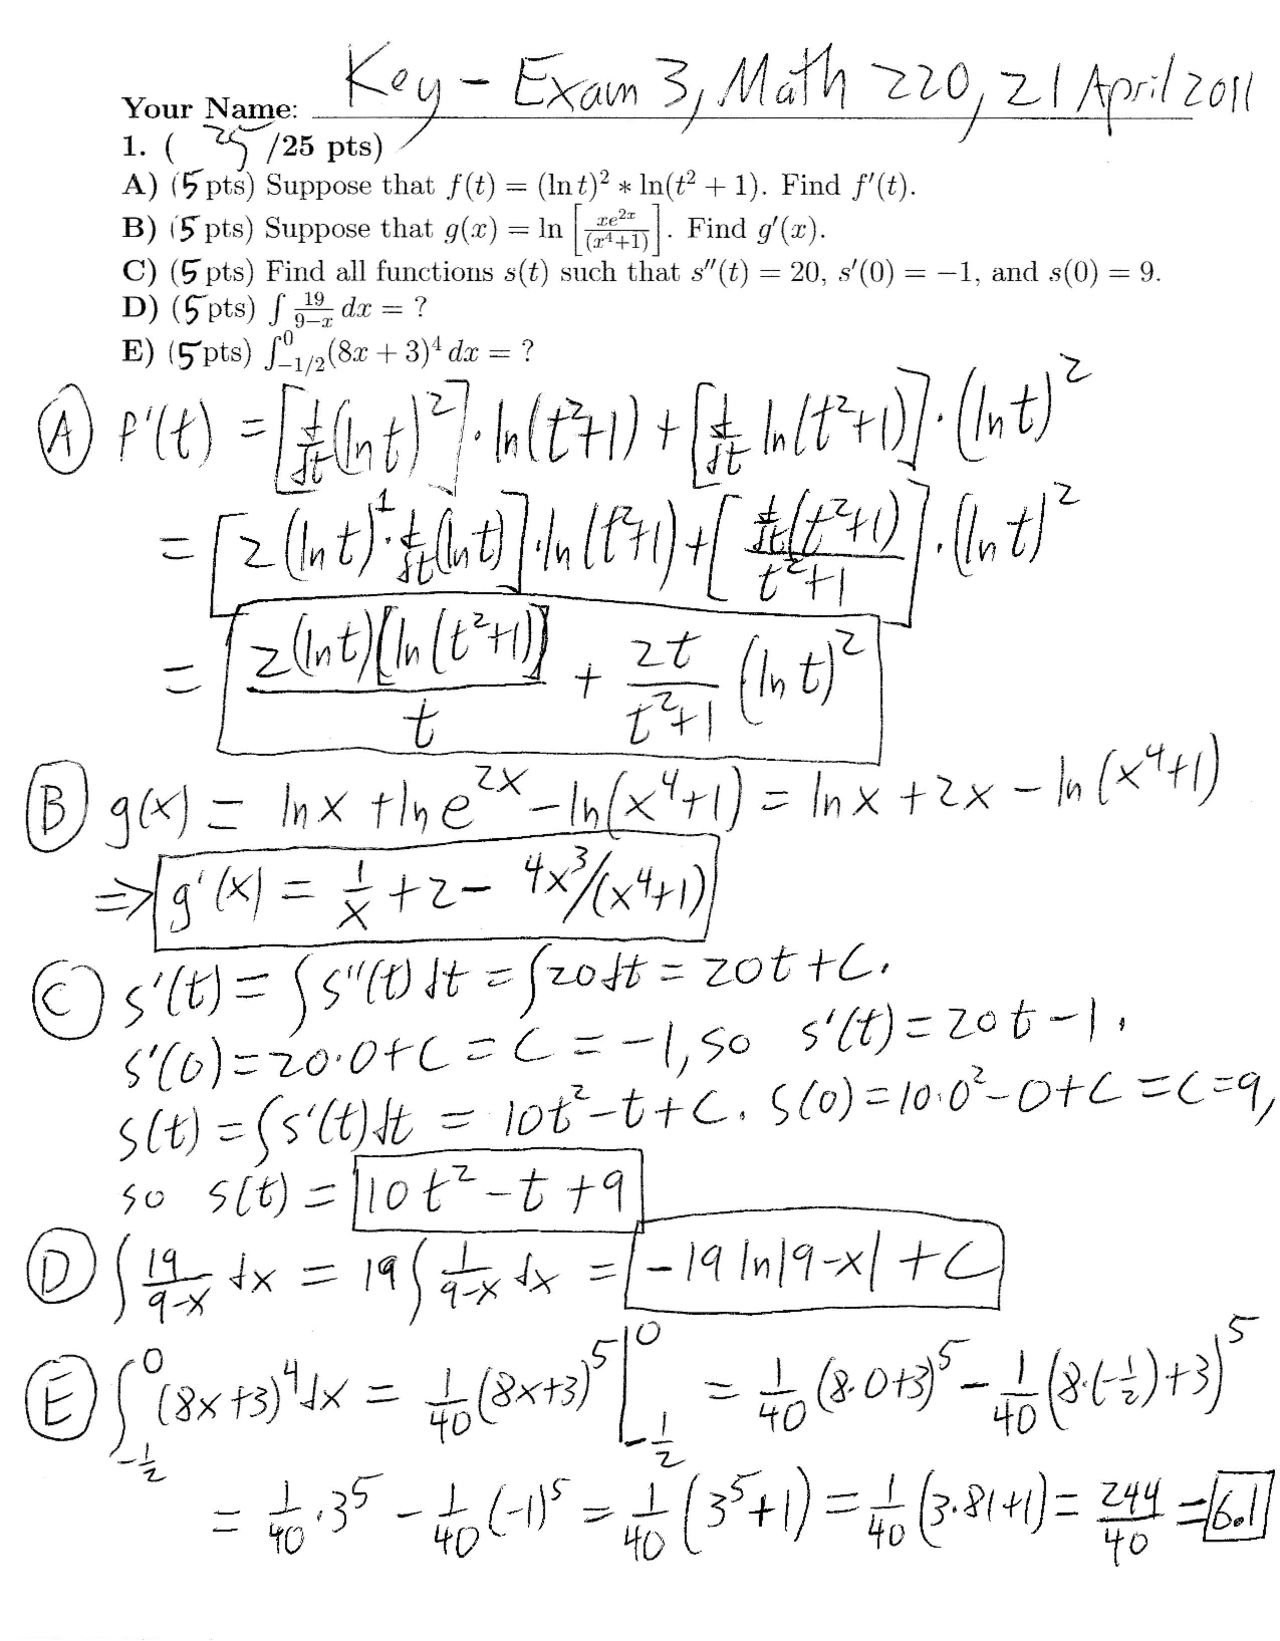 Your Name: Key – Exam 3, Math 220, 21 April 2011
1. ( 25 /25 pts)
A) (5 pts) Suppose that f(t) = (ln t)² * ln(t² + 1). Find f′(t).
B) (5 pts) Suppose that g(x) = ln [xe^{2x}/(x⁴+1)]. Find g′(x).
C) (5 pts) Find all functions s(t) such that s″(t) = 20, s′(0) = −1, and s(0) = 9.
D) (5 pts) ∫ 19/(9−x) dx = ?
E) (5 pts) ∫_{−1/2}^{0} (8x + 3)⁴ dx = ?
(A) f'(t) = [d/dt (ln t)²]·ln(t²+1) + [d/dt ln(t²+1)]·(ln t)²
= [2(ln t)¹·d/dt(ln t)]·ln(t²+1) + [d/dt(t²+1)/(t²+1)]·(ln t)²
= 2(ln t)[ln(t²+1)]/t + 2t/(t²+1) (ln t)²
(B) g(x) = ln x + ln e^{2x} − ln(x⁴+1) = ln x + 2x − ln(x⁴+1)
⇒ g'(x) = 1/x + 2 − 4x³/(x⁴+1)
(C) s'(t) = ∫s''(t)dt = ∫20dt = 20t + C.
s'(0) = 20·0 + C = C = −1, so s'(t) = 20t − 1.
s(t) = ∫s'(t)dt = 10t² − t + C. s(0) = 10·0² − 0 + C = C = 9,
so s(t) = 10t² − t + 9
(D) ∫ 19/(9−x) dx = 19 ∫ 1/(9−x) dx = −19 ln|9−x| + C
(E) ∫_{−1/2}^{0} (8x+3)⁴dx = 1/40 (8x+3)⁵ |_{−1/2}^{0} = 1/40 (8·0+3)⁵ − 1/40 (8·(−1/2)+3)⁵
= 1/40·3⁵ − 1/40 (−1)⁵ = 1/40 (3⁵+1) = 1/40 (3·81+1) = 244/40 = 6.1